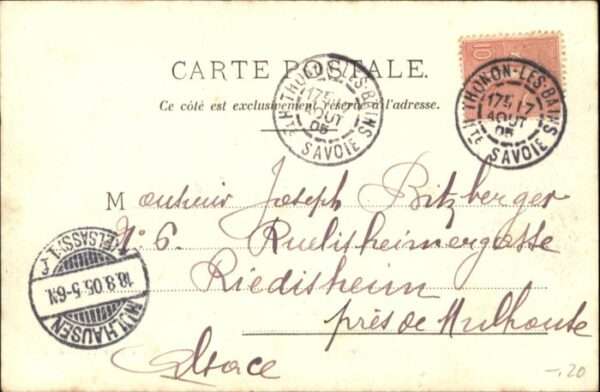 CARTE POSTALE.
Ce côté est exclusivement réservé à l'adresse.
THONON-LES-BAINS
17E
AOUT
05
HTE SAVOIE
10
THONON-LES-BAINS
17E 17
AOUT
05
HTE SAVOIE
Monsieur Joseph Bitzberger
No 6. Ruelisheimergasse
Riedisheim
près de Mulhouse
Alsace
MÜLHAUSEN
18.8.05.5-6N.
(ELSASS) 1
-.20